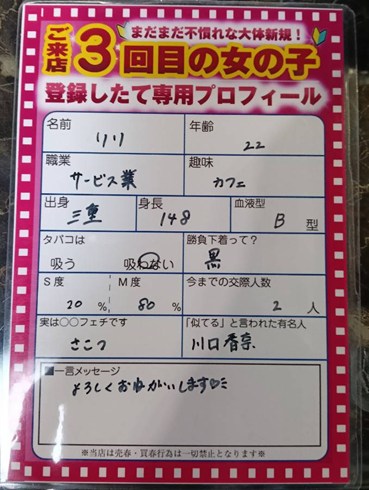 まだまだ不慣れな大体新規！
ご来店3回目の女の子
登録したて専用プロフィール
名前 リリ 年齢 22
職業 サービス業 趣味 カフェ
出身 三重 身長 148 血液型 B 型
タバコは 吸う 吸わない 勝負下着って？ 黒
S度 20 % M度 80 % 今までの交際人数 2 人
実は○○フェチです さこつ 「似てる」と言われた有名人 川口春奈
■一言メッセージ
よろしくおねがいします♡ミ
※当店は売春・買春行為は一切禁止となります※